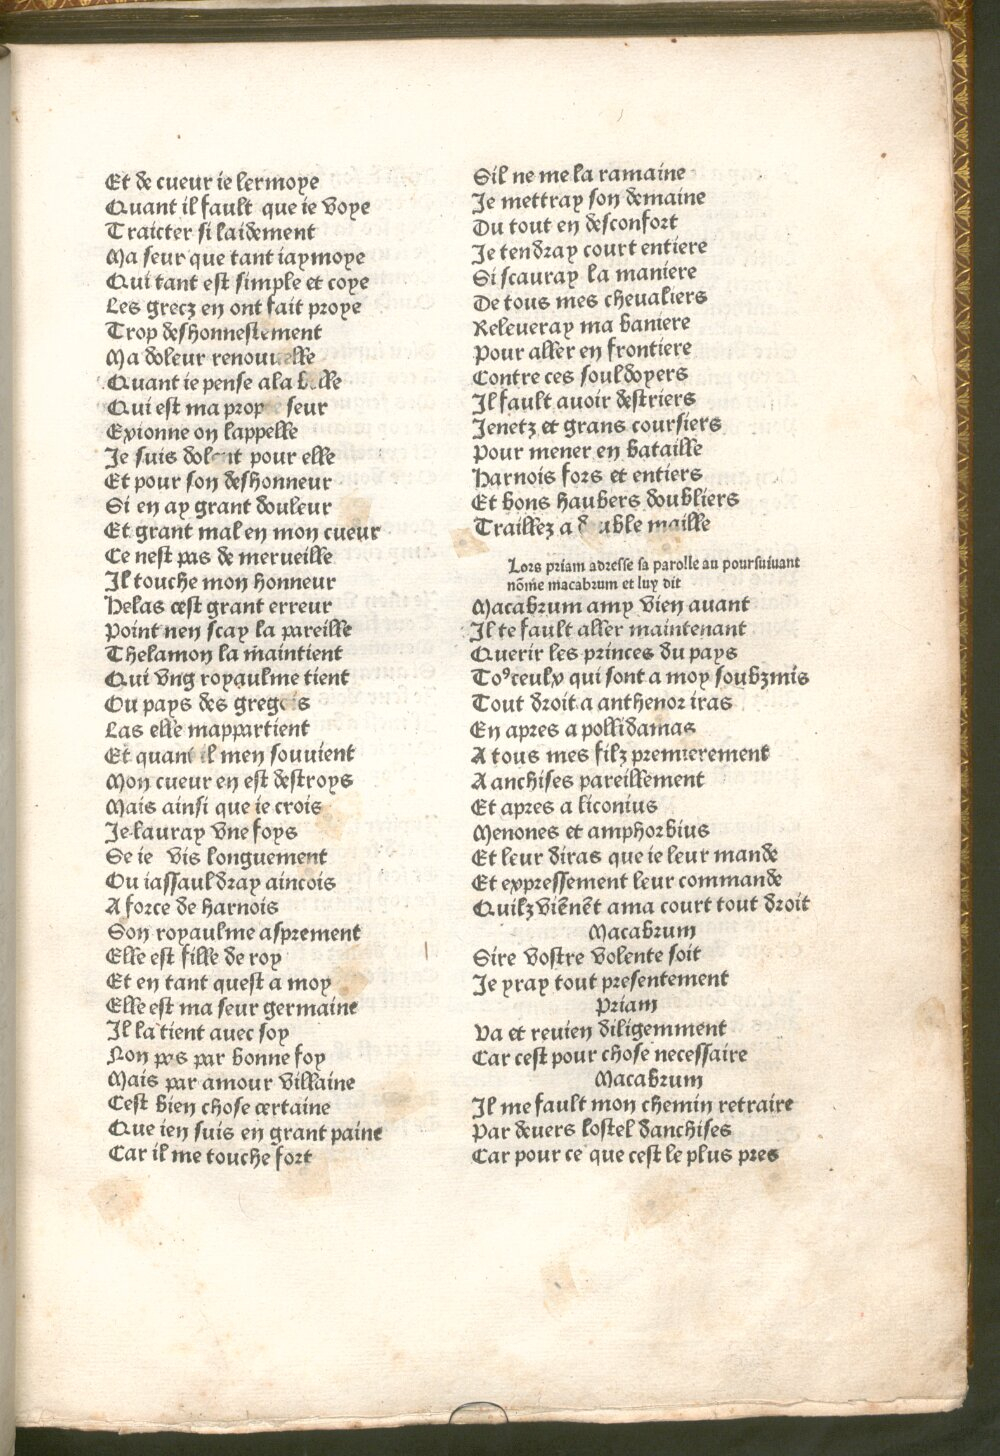 Et de cueur ie lermoye
Quant il fault que ie voye
Traicter si laidement
Ma seur que tant iaymoye
Qui tant est simple et coye
Les grecz en ont fait proye
Trop deshonnestement
Ma doleur renouuelle
Quant ie pense a la belle
Qui est ma propre seur
Exionne on lappelle
Je suis dolent pour elle
Et pour son deshonneur
Si en ay grant douleur
Et grant mal en mon cueur
Ce nest pas de merueille
Il touche mon honneur
Helas cest grant erreur
Point nen scay la pareille
Thelamon la maintient
Qui vng royaulme tient
Ou pays des gregois
Las elle mappartient
Et quant il men souuient
Mon cueur en est destroys
Mais ainsi que ie crois
Je lauray vne foys
Se ie vis longuement
Ou iassauldray aincois
A force de harnois
Son royaulme asprement
Elle est fille de roy
Et en tant quest a moy
Elle est ma seur germaine
Il la tient auec soy
Non pas par bonne foy
Mais par amour villaine
Cest bien chose certaine
Que ien suis en grant paine
Car il me touche fort
Sil ne me la ramaine
Je mettray son demaine
Du tout en desconfort
Je tendray court entiere
Si scauray la maniere
De tous mes cheualiers
Releueray ma baniere
Pour aller en frontiere
Contre ces souldoyers
Il fault auoir destriers
Jenetz et grans coursiers
Pour mener en bataille
Harnois fors et entiers
Et bons haubers doubliers
Traillez a double maille
Lors priam adresse sa parolle au poursuiuant
nõme macabrum et luy dit
Macabrum amy vien auant
Il te fault aller maintenant
Querir les princes du pays
Toꝰ ceulx qui sont a moy soubzmis
Tout droit a anthenor iras
En apres a pollidamas
A tous mes filz premierement
A anchises pareillement
Et apres a liconius
Menones et amphorbius
Et leur diras que ie leur mande
Et expressement leur commande
Quilz viẽnẽt a ma court tout droit
Macabrum
Sire vostre volente soit
Je yray tout presentement
Priam
Va et reuien diligemment
Car cest pour chose necessaire
Macabrum
Il me fault mon chemin retraire
Par deuers lostel danchises
Car pour ce que cest le plus pres